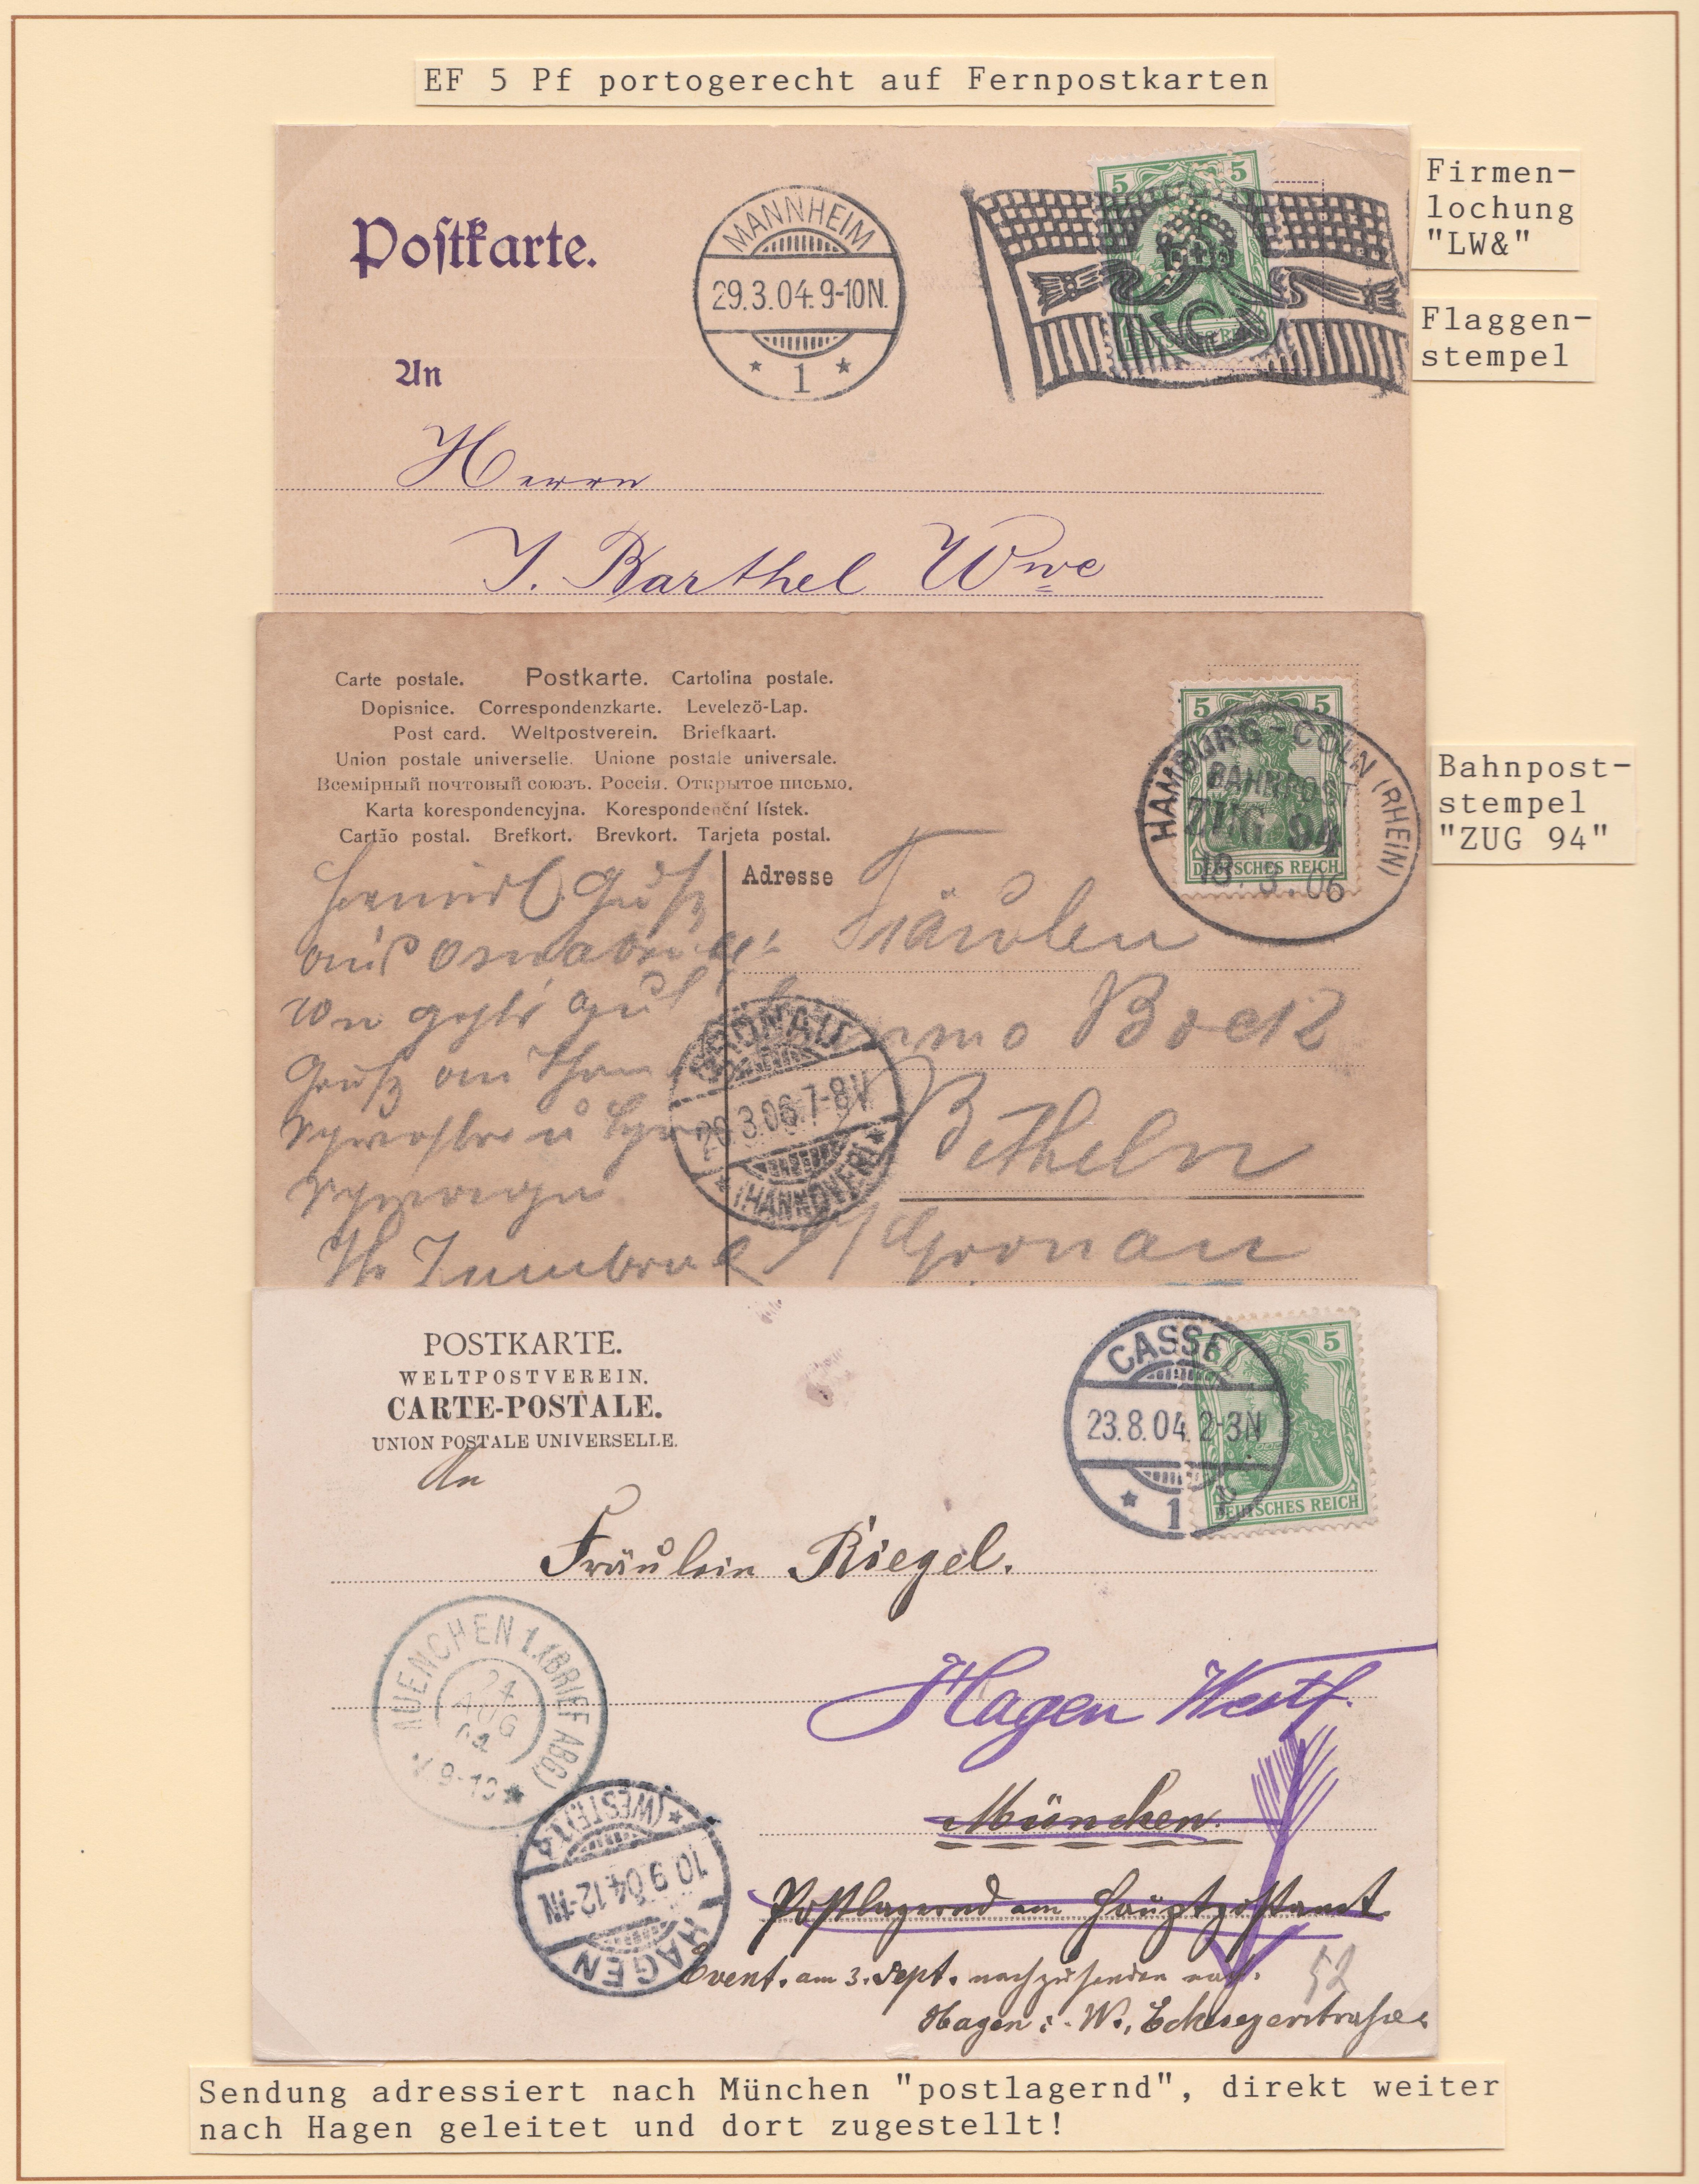 EF 5 Pf portogerecht auf Fernpostkarten
Firmen-
lochung
"LW&"
Flaggen-
stempel
Postkarte.
MANNHEIM
29.3.04. 9-10N.
* 1 *
5 5
An
Herrn
J. Barthel Wwe
Carte postale. Postkarte. Cartolina postale.
Dopisnice. Correspondenzkarte. Levelező-Lap.
Post card. Weltpostverein. Briefkaart.
Union postale universelle. Unione postale universale.
Всемірный почтовый союзъ. Россія. Открытое письмо.
Karta korespondencyjna. Korespondenční lístek.
Cartão postal. Brefkort. Brevkort. Tarjeta postal.
Adresse
5 5
DEUTSCHES REICH
HAMBURG - CÖLN (RHEIN)
BAHNPOST
ZUG 94
18. 3. 06
Bahnpost-
stempel
"ZUG 94"
Gruß
aus Osnabrück
Fräulein
Bock
Betheln
b/Gronau
GRONAU
20.3.06. 7-8V
* (HANNOVER) *
POSTKARTE.
WELTPOSTVEREIN.
CARTE-POSTALE.
UNION POSTALE UNIVERSELLE.
CASSEL
23.8.04. 2-3N
* 1
5 5
DEUTSCHES REICH
An
Fräulein Riegel.
Hagen Westf.
München.
Postlagernd am Hauptpostamt.
Event. am 3. Sept. nachzusenden nach
52
Hagen i. W., Eckeseyerstraße
MUENCHEN 1. (BRIEF ABG)
24
AUG
04
V. 9-10 *
HAGEN
10.9.04. 12-1N
* (WESTF.) 1
Sendung adressiert nach München "postlagernd", direkt weiter
nach Hagen geleitet und dort zugestellt!